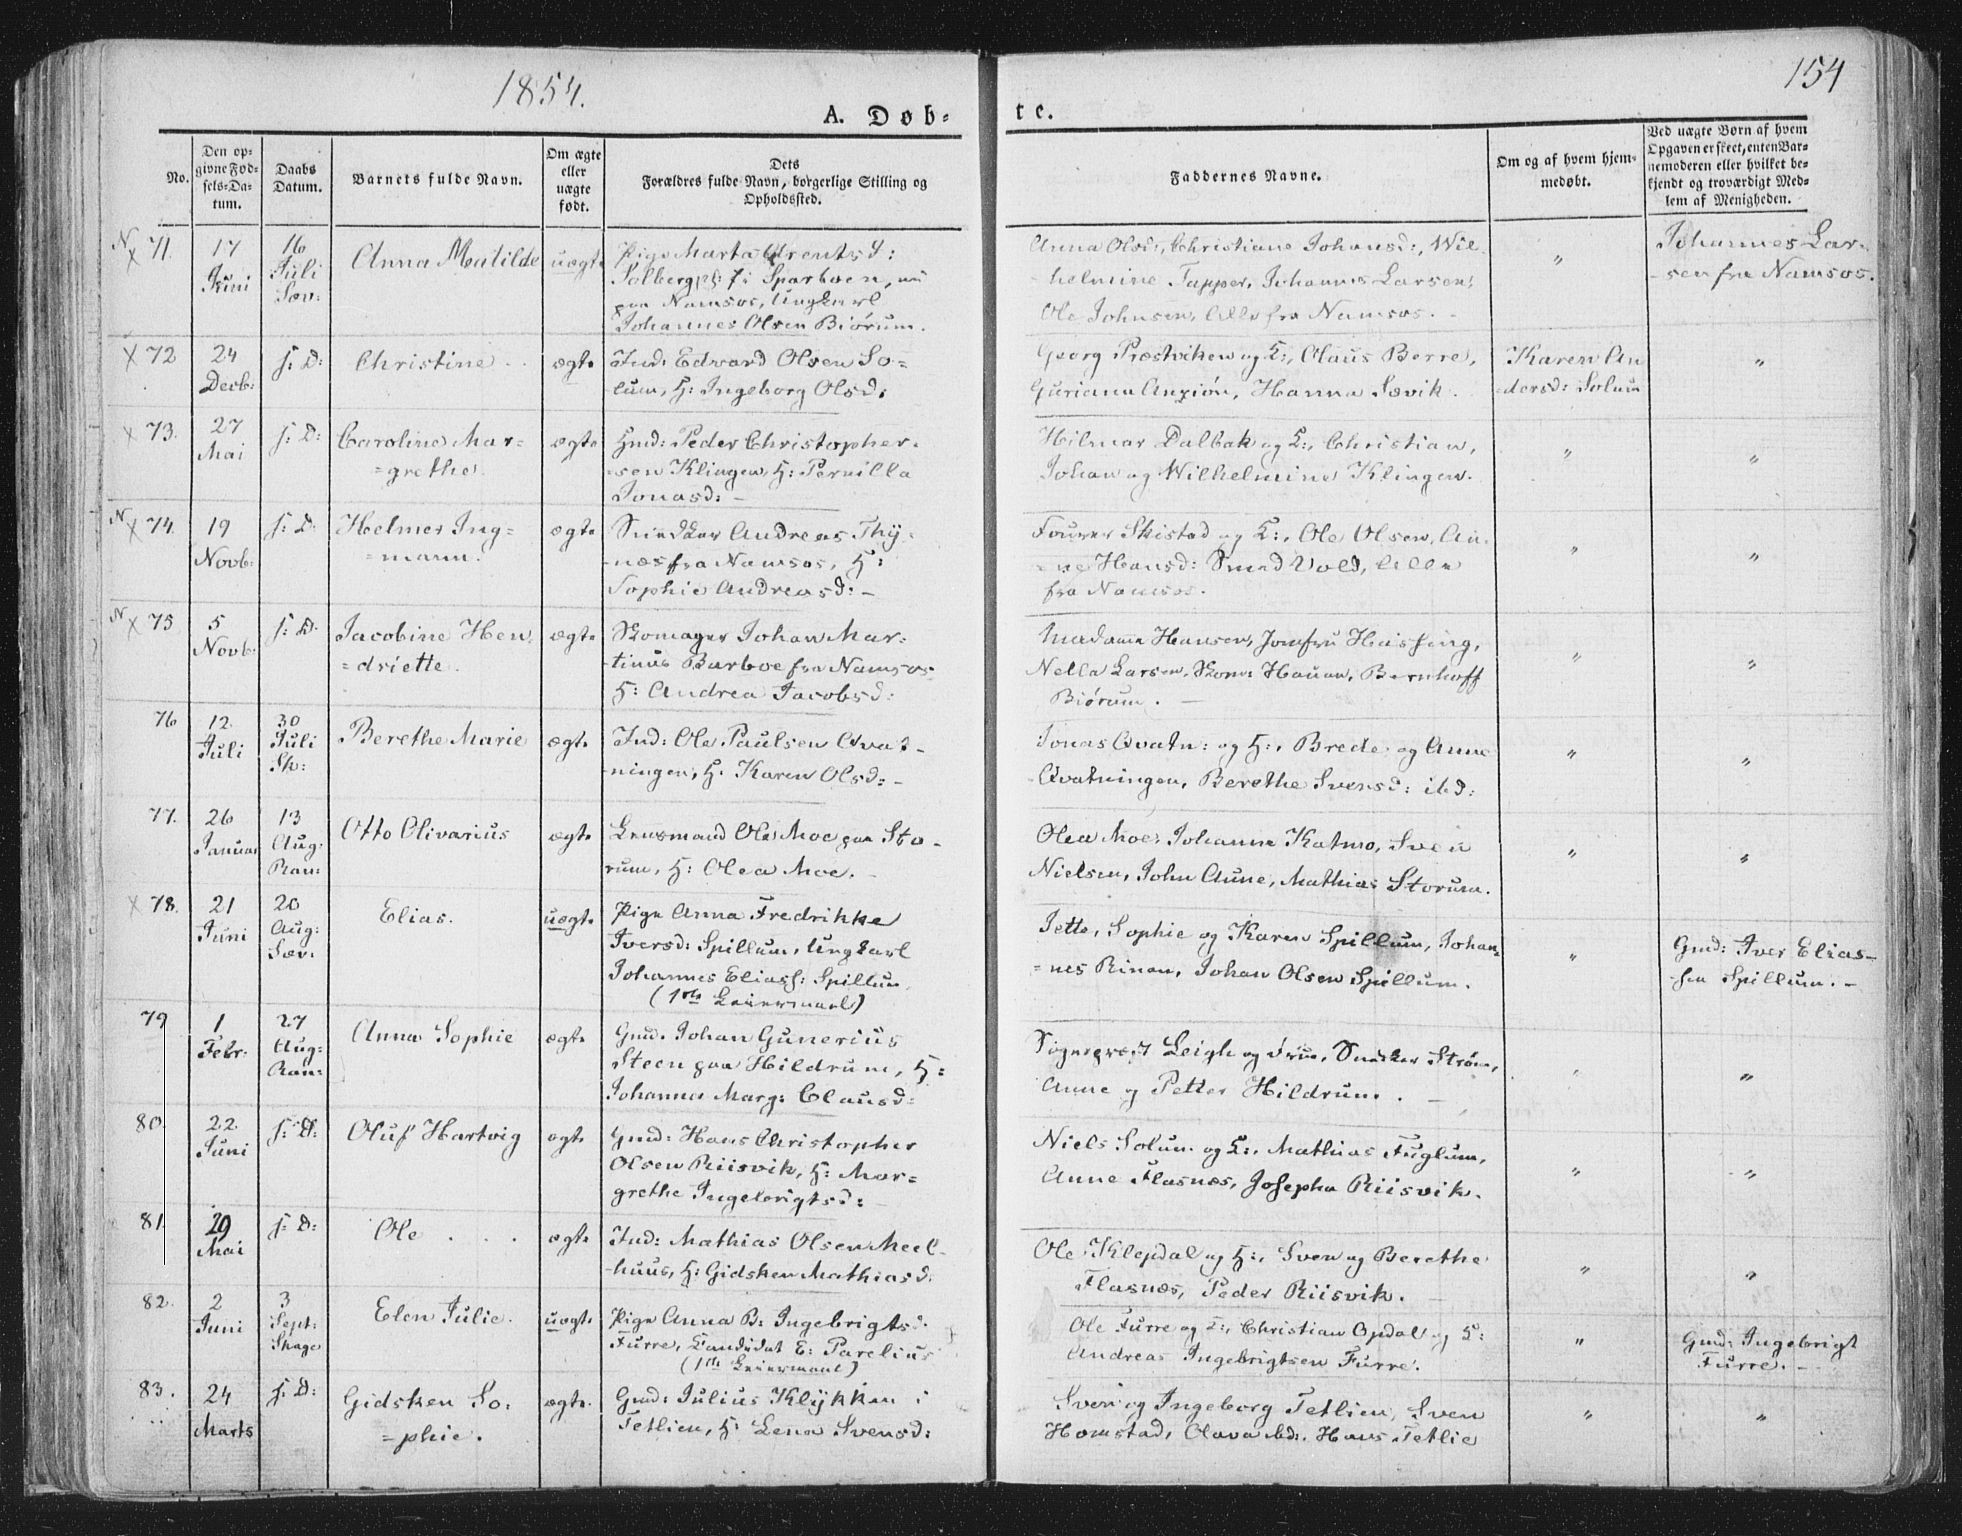 1854.
154
A. Døb-
te.
No.
Den op-
givne Fød-
sels-Da-
tum.
Daabs
Datum.
Barnets fulde Navn.
Om ægte
eller
uægte
født.
Dets
Forældres fulde Navn, borgerlige Stilling og
Opholdssted.
Faddernes Navne.
Om og af hvem hjem-
medøbt.
Ved uægte Børn af hvem
Opgaven er skeet, enten Bar-
nemoderen eller hvilket be-
kjendt og troværdigt Med-
lem af Menigheden.
N
x 71.
17
Juni
16
Juli
Sæv:
Anna Matilde
uægte
Pige Marta Arentsd:
Solberg fr: Sparboen, nu
paa Namsos, Ungkarl
Johannes Olsen Biörum.
Anna Olsd:, Christiane Johansd:, Wil-
helmine Tapper, Johannes Larsen,
Ole Johnsen, Alle fra Namsos.
"
Johannes Lar-
sen fra Namsos.
x 72
24
Decb:
s: D:
Christine
ægte
Ind: Edvard Olsen So-
lum, H: Ingeborg Olsd:
Georg Præstviken og K:, Olaus Berre,
Guriana Anxión, Hanna Sævik.
Karen An
dersd: Solum
"
x 73.
27
Mai
s: D:
Caroline Mar=
=grethe.
ægte
Gmd: Peder Christopher-
sen Klingen, H: Pernilla
Jonasd: -
Hilmar Dalbak og K:, Christian,
Johan og Wilhelmine Klingen.
"
"
N
x 74.
19
Novb:
s: D:
Helmer Ing=
=mann.
ægte
Snedker Andreas Thy-
næs fra Namsos, H:
Sophie Andreasd: -
Fourer Skistad og K:, Ole Olsen, An-
ne Hansd: Smed Vold, Alle
fra Namsos.
"
"
N
x 75
5
Novb:
s: D:
Jacobine Hen
=driette.
ægte
Skomager Johan Mar-
tinus Barboe fra Namsos
H: Andrea Jacobsd:
Madame Hansen, Jomfru
Nella Larsen, Skom: Hauan, Bernhoff
Biörum. -
"
"
76
12
Juli
30
Juli
Sk:
Berethe Marie
ægte
Ind: Ole Paulsen Qvat-
ningen, H. Karen Olsd: -
Jonas Qvatn: og H:, Brede og Anne
Qvatningen, Berethe Svensd: ibd:
"
"
77.
26
Januar
13
Aug:
Ran:
Otto Olivarius
ægte
Lensmand Ole Moe paa Sto-
rum, H: Olea Moe. -
Olea Moe, Johanna Katmo, Sven
Nielsen, John Aune, Mathias Storum.
"
"
x 78.
21
Juni
20
Aug:
Sæv.
Elias.
uægte
Pige Anna Fredrikke
Iversd: Spillum, Ungkarl
Johannes Eliass: Spillum
(1ste Leiermaal)
Jette, Sophie og Karen Spillum, Johan=
=nes Rinan, Johan Olsen Spillum.
"
Gmd: Iver Elias-
sen Spillum. -
79
1
Febr:
27
Aug:
Ran:
Anna Sophie
ægte
Gmd. Johan Gunerius
Steen paa Hildrum, H:
Johanna Marg: Clausd:
Sognepræst Leigh og Frue, Snedker Strøm,
Anne og Petter Hildrum. -
"
"
80.
22
Juni
s: D:
Oluf Hartvig
ægte
Gmd: Hans Christopher
Olsen Riisvik, H: Mar=
grethe Ingebrigtsd: -
Niels Solum og K:, Mathias Fuglum,
Anne Flasnæs, Josepha Riisvik.
"
"
81.
29
Mai
s: D:
Ole . . .
ægte
Ind: Mathias Olsen Meel-
huus, H: Gidsken Mathiasd.
Ole Klepdal og H:, Sven og Berethe
Flasnæs, Peder Riisvik. -
"
"
82.
2
Juni
3
Sept:
Skage
Elen Julie.
uægte
Pige Anna B: Ingebrigtsd.
Furre, Candidat E: Parelius
(1ste Leiermaal)
Ole Furre og K:, Christian Opdal og K:
Andreas Ingebrigtsen Furre.
"
Gmd: Ingebrigt
Furre. -
83.
24
Marts
s: D:
Gidsken So:
=phie.
ægte
Gmd: Julius Klykken i
Tetlien, H: Lena Svensd:
Sven og Ingeborg Tetlien, Sven
Homstad, Olava ibd:, Hans Tetlie
"
"